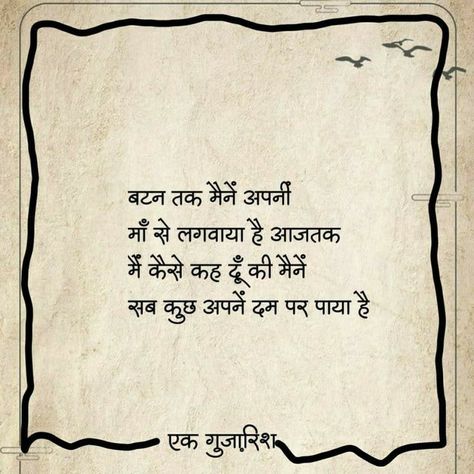 बटन तक मैनें अपनीं
माँ से लगवाया है आजतक
मैं कैसे कह दूँ की मैनें
सब कुछ अपनें दम पर पाया है
एक गुज़ारिश